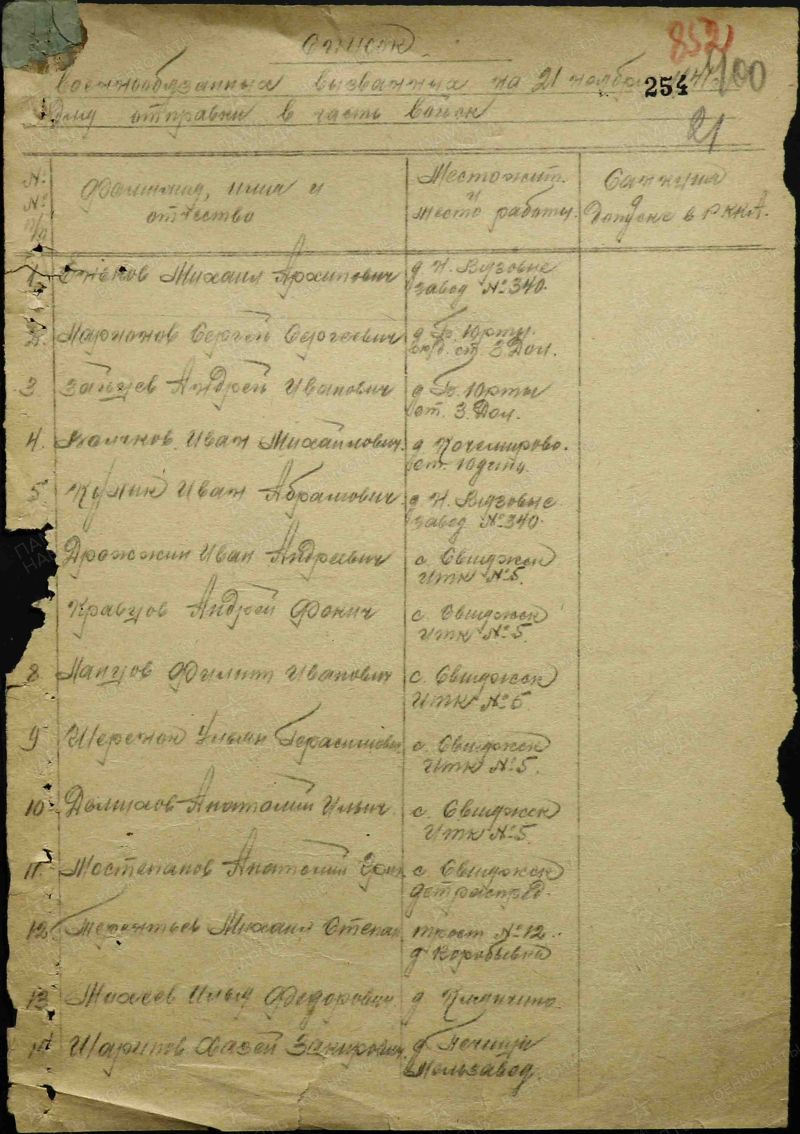 Список
военнообязанных вызванных на 21 ноября 41
для отправки в часть
852
100
254
21
№ № п/п
Фамилия, имя и отчество
Местожит. и место работы.
Санкция допуска в РККА.
1 Михаил Архипович д Н. Вязовые
завод № 340.
2 Сергей Сергеевич д Б. Юрты.
ст. З. Дол.
3 Зайцев Андрей Иванович д Б. Юрты
ст. З. Дол.
4. Волчков Иван Михайлович. д Кочемирово.
ст. Юдино.
5 Кулик Иван Абрамович д Н. Вязовые
завод № 340.
Дрожжин Иван Андреевич с. Свияжск
Итк № 5.
Кравцов Андрей Фокич с. Свияжск
Итк № 5.
8 Филипп Иванович с. Свияжск
Итк № 5.
9 Ульян Герасимович с. Свияжск
Итк № 5.
10 Анатолий Ильич. с. Свияжск
Итк № 5.
11 Мостепанов Анатолий с. Свияжск
12 Терентьев Михаил Степан трест № 12.
13 Михеев Илья Федорович. д
14 Шарипов Закирович. д. Печищи
Мельзавод.